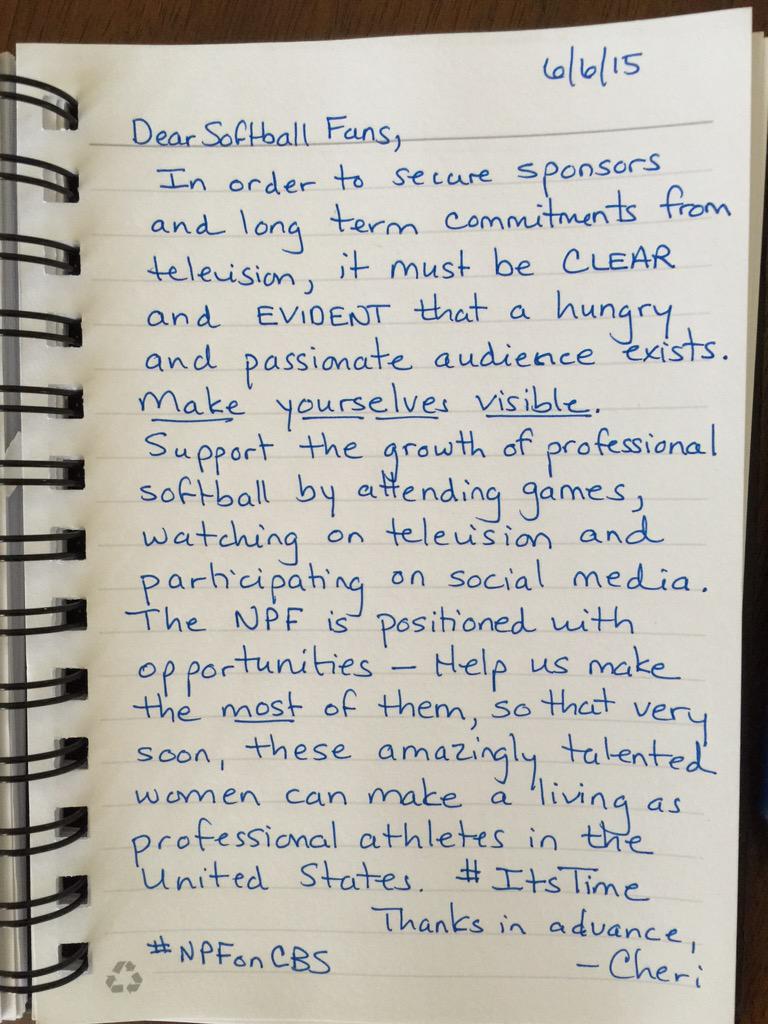 6/6/15
Dear Softball Fans,
In order to secure sponsors
and long term commitments from
television, it must be CLEAR
and EVIDENT that a hungry
and passionate audience exists.
Make yourselves visible.
Support the growth of professional
softball by attending games,
watching on television and
participating on social media.
The NPF is positioned with
opportunities – Help us make
the most of them, so that very
soon, these amazingly talented
women can make a living as
professional athletes in the
United States. #ItsTime
Thanks in advance,
#NPFonCBS
– Cheri